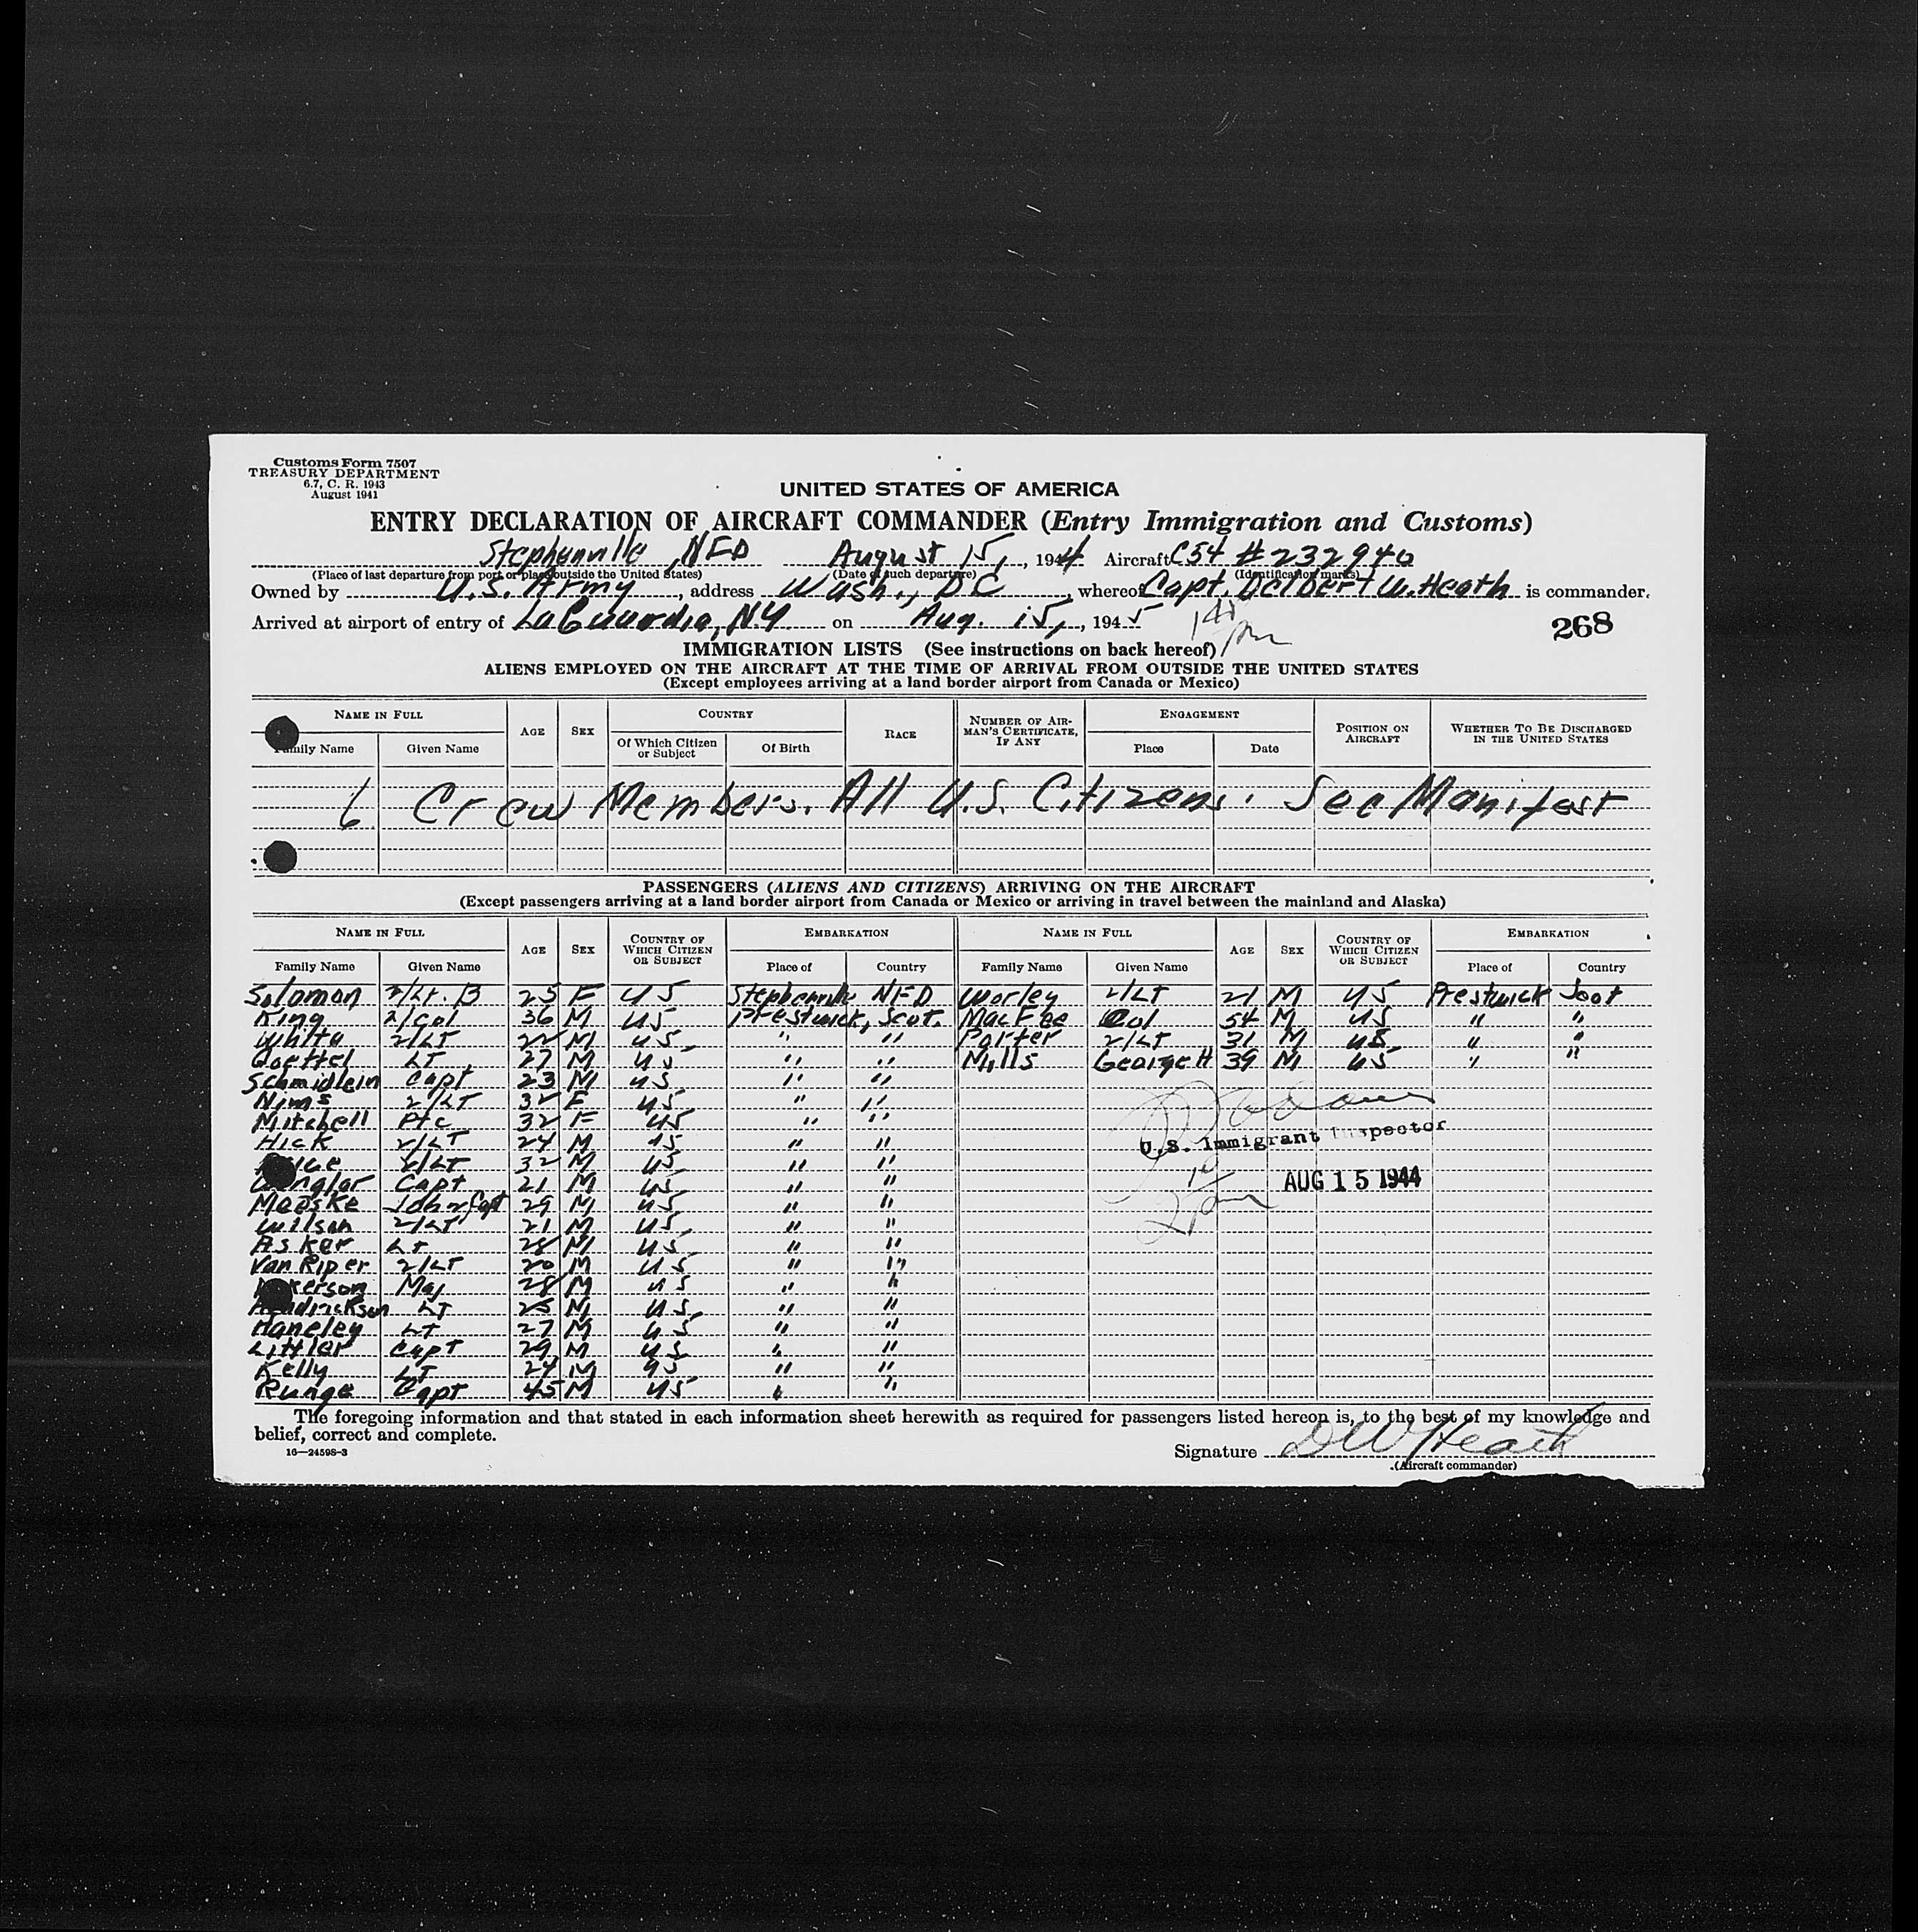 Customs Form 7507
TREASURY DEPARTMENT
6.7, C. R. 1943
August 1941
UNITED STATES OF AMERICA
ENTRY DECLARATION OF AIRCRAFT COMMANDER (Entry Immigration and Customs)
Stephenville, NFD August 15, 1944 Aircraft C54 #232940
(Place of last departure from port or place outside the United States) (Date of such departure) (Identification marks)
Owned by U.S. Army, address Wash., DC, whereof Capt. Delbert W. Heath is commander.
Arrived at airport of entry of LaGuardia, NY on Aug. 15, 1945
268
IMMIGRATION LISTS (See instructions on back hereof)
ALIENS EMPLOYED ON THE AIRCRAFT AT THE TIME OF ARRIVAL FROM OUTSIDE THE UNITED STATES
(Except employees arriving at a land border airport from Canada or Mexico)
NAME IN FULL AGE SEX COUNTRY RACE NUMBER OF AIRMAN'S CERTIFICATE, IF ANY ENGAGEMENT POSITION ON AIRCRAFT WHETHER TO BE DISCHARGED IN THE UNITED STATES
Family Name Given Name Of Which Citizen or Subject Of Birth Place Date
6 Crew Members. All U.S. Citizens. See Manifest
PASSENGERS (ALIENS AND CITIZENS) ARRIVING ON THE AIRCRAFT
(Except passengers arriving at a land border airport from Canada or Mexico or arriving in travel between the mainland and Alaska)
NAME IN FULL AGE SEX COUNTRY OF WHICH CITIZEN OR SUBJECT EMBARKATION NAME IN FULL AGE SEX COUNTRY OF WHICH CITIZEN OR SUBJECT EMBARKATION
Family Name Given Name Place of Country Family Name Given Name Place of Country
Solomon 2/Lt. B 25 F US Stephenville NFD Worley 2/LT 21 M US Prestwick Scot
King 36 M US Prestwick, Scot. MacFee Col 54 M US " "
White 2/LT 22 M US " " Porter 2/LT 31 M US " "
Goettel LT 27 M US " " Mills George H 39 M US " "
Schmidlein Capt 23 M US " "
Nims 2/LT 32 F US " "
Mitchell Pfc 32 F US " "
Hick 2/LT 24 M US " "
2/LT 32 M US " "
Capt 21 M US " "
Meeske John Capt 29 M US " "
Wilson 2/LT 21 M US " "
Asker LT 28 M US " "
Van Riper 2/LT 20 M US " "
Maj 28 M US " "
Hendrickson LT 25 M US " "
Haneley LT 27 M US " "
Littler Capt 29 M US " "
Kelly LT 24 M US " "
Runge Capt 45 M US " "
U.S. Immigrant Inspector
AUG 15 1944
The foregoing information and that stated in each information sheet herewith as required for passengers listed hereon is, to the best of my knowledge and
belief, correct and complete.
16—24598-3
Signature DW Heath
(Aircraft commander)